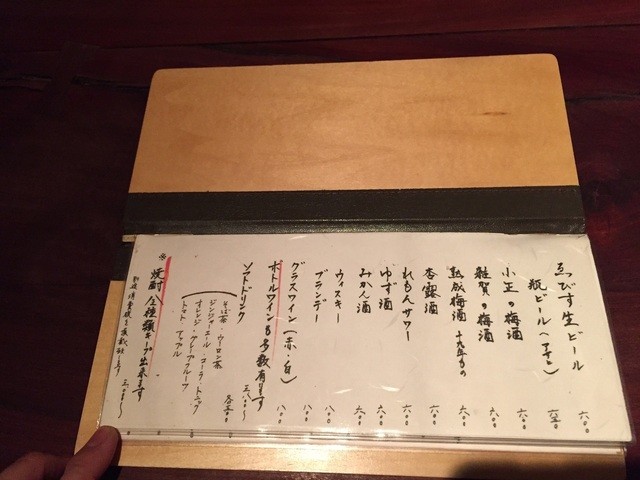 ゑびす生ビール 六〇〇
瓶ビール
小正の梅酒 六〇〇
雑賀の梅酒 六〇〇
熟成梅酒 十九年もの 六〇〇
杏露酒 六〇〇
れもんサワー 六〇〇
ゆず酒 六〇〇
みかん酒 六〇〇
ウィスキー 八〇〇
ブランデー 八〇〇
グラスワイン（赤・白） 八〇〇
ボトルワインも多数有ります
ソフトドリンク 各五〇〇
そば茶・ウーロン茶
ジンジャーエール・コーラ・トニック
オレンジ・グレープフルーツ
トマト・アップル
※焼酎全種類キープ出来ます